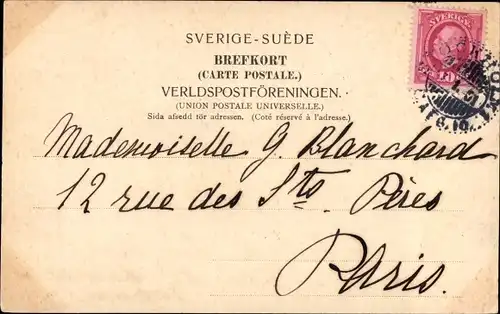 SVERIGE-SUÈDE
BREFKORT
(CARTE POSTALE.)
VERLDSPOSTFÖRENINGEN.
(UNION POSTALE UNIVERSELLE.)
Sida afsedd för adressen. (Coté réservé à l'adresse.)
SVERIGE
Mademoiselle G. Blanchard
12 rue des Sts. Pères
Paris.